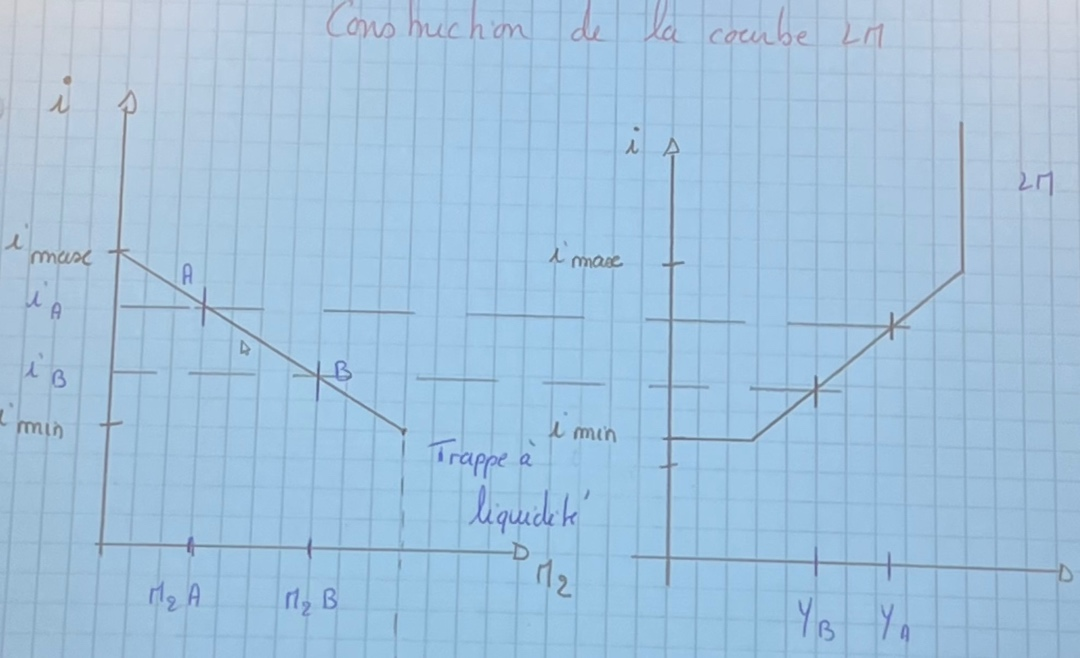 Construction de la courbe LM
i
i max
i A
i B
i min
A
B
Trappe à
liquidité
M2 A
M2 B
M2
i
i max
i min
LM
YB
YA